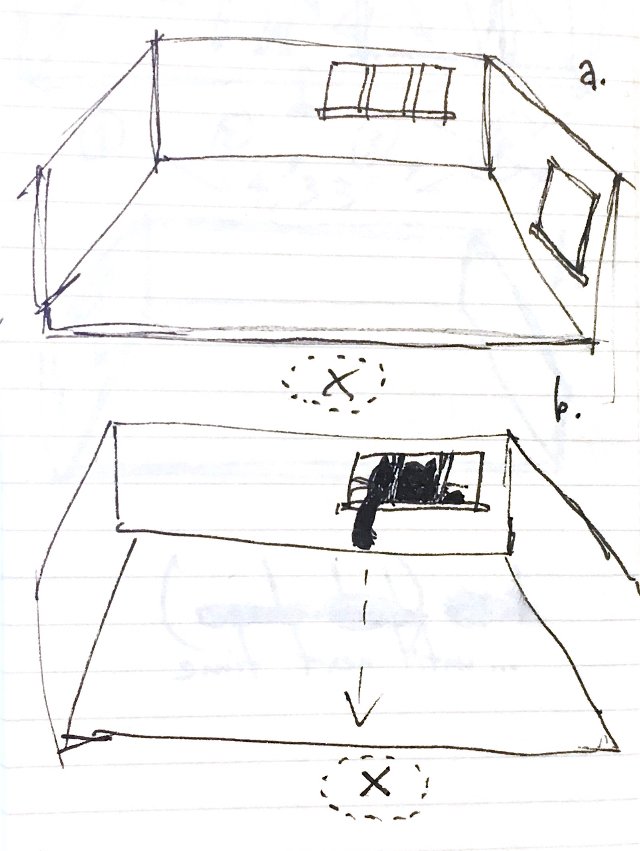 a.
X
b.
X